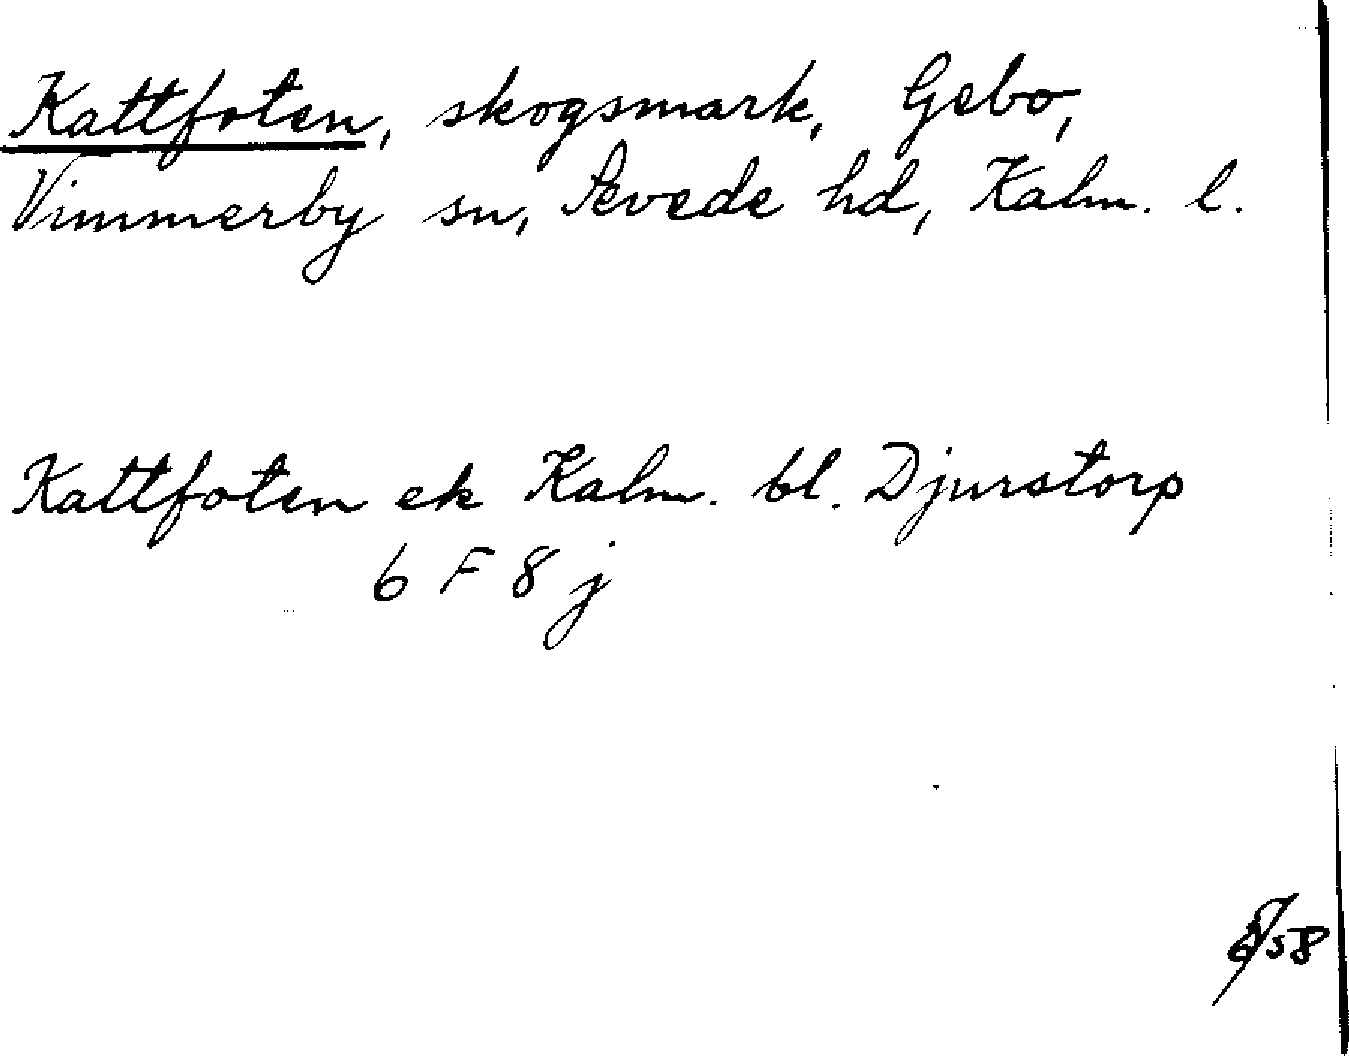 Kattfoten, skogsmark, Gebo,
Vimmerby sn, Sevede hd, Kalm. l.
Kattfoten ek Kalm. bl. Djurstorp
6 F 8 j